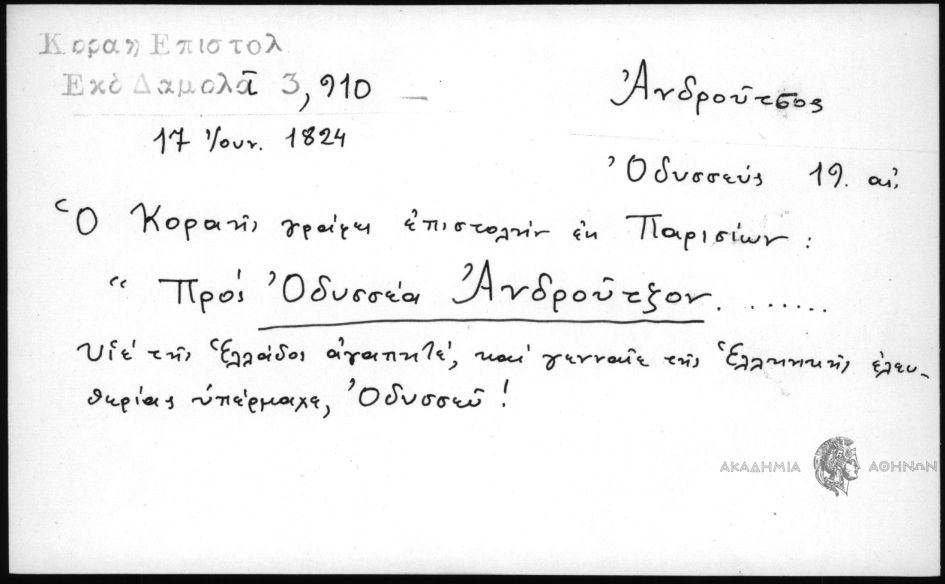 Κοραη Επιστολ
Εκδ Δαμαλᾶ 3, 910
17 Ἰουν. 1824
Ἀνδροῦτσος
Ὀδυσσεύς 19. αἰ.
Ὁ Κοραῆς γράφει ἐπιστολὴν ἐκ Παρισίων :
“ Πρὸς Ὀδυσσέα Ἀνδροῦτζον . . . . . . .
Υἱὲ τῆς Ἑλλάδος ἀγαπητέ, καὶ γενναῖε τῆς Ἑλληνικῆς ἐλευ-
θερίας ὑπέρμαχε, Ὀδυσσεῦ !
ΑΚΑΔΗΜΙΑ ΑΘΗΝΩΝ